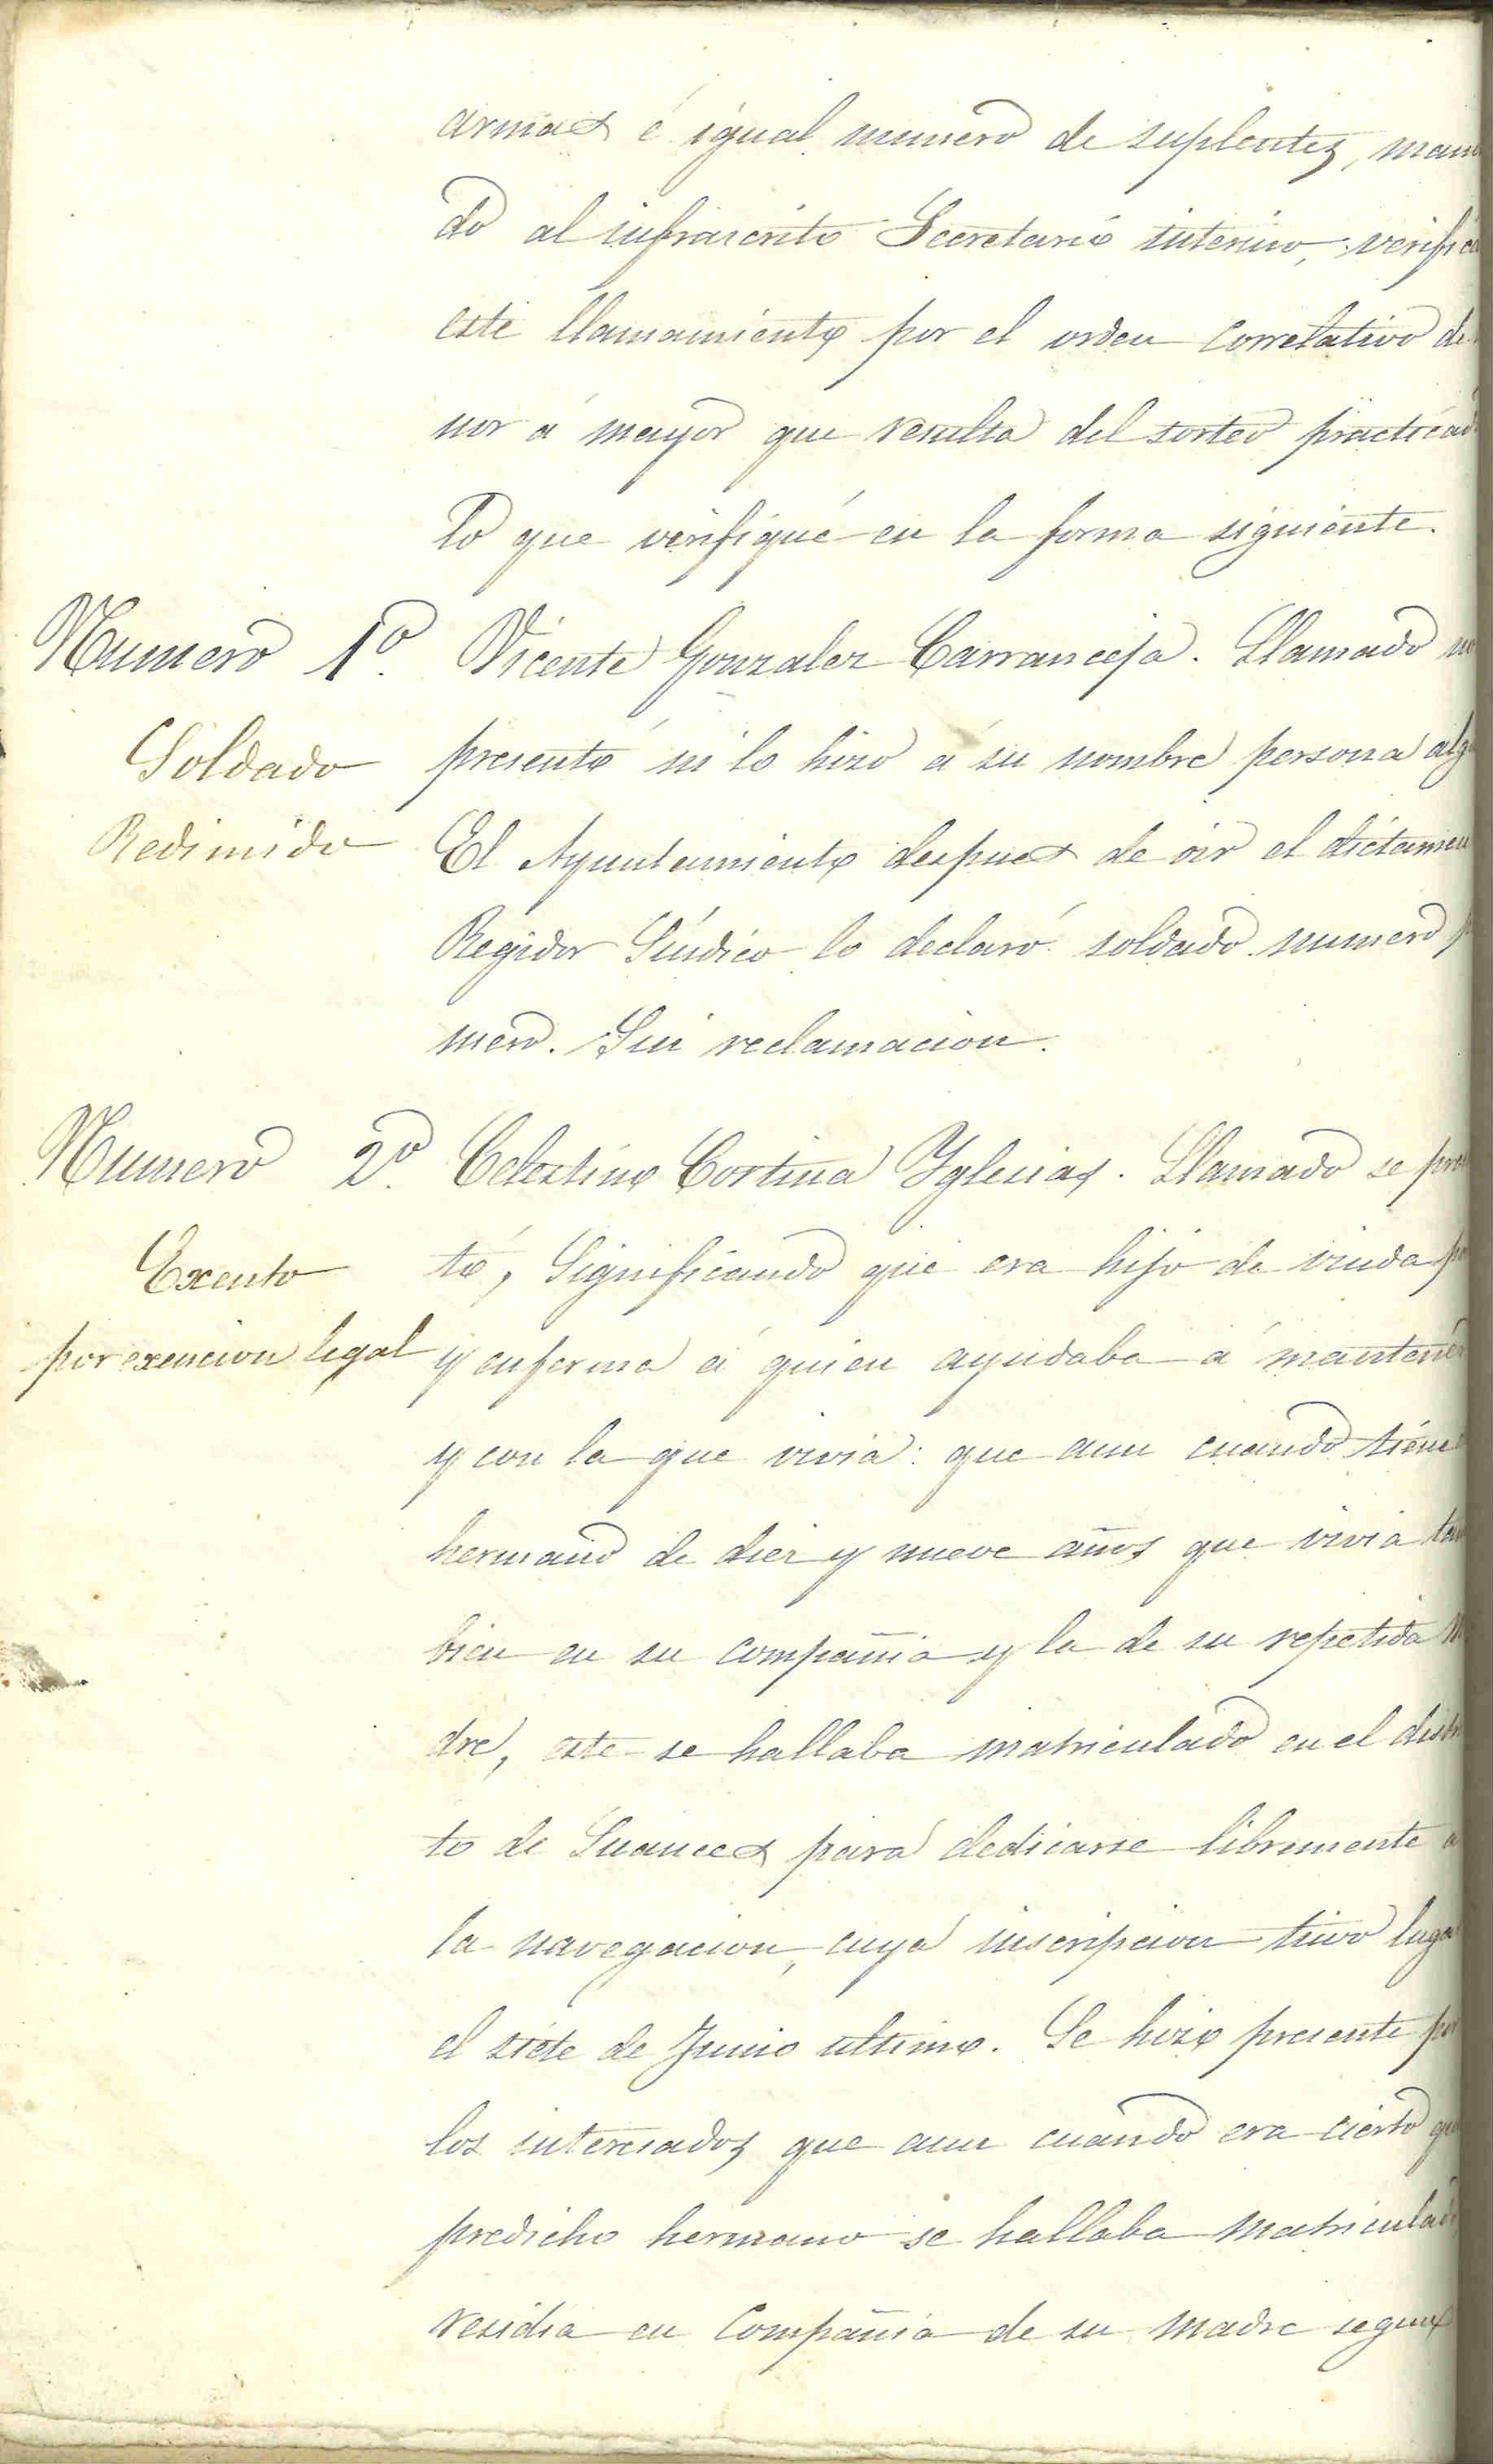 armas é igual numero de suplentes, man
do al infrascrito Secretario interino, verific
este llamamiento por el orden correlativo de
nor á mayor que resulta del sorteo practicad
lo que verifiqué en la forma siguiente.
Numero 1º. Vicente Gonzalez Carranceja. Llamado no
Soldado presentó ni lo hizo á su nombre persona alg
Redimido El Ayuntamiento despues de oir el dictamen
Regidor Síndico lo declaró soldado numero
mero. Sin reclamacion.
Numero 2º. Celestino Cortina Yglesias. Llamado se pre
Exento tó, significando que era hijo de viuda po
por exencion legal y enferma á quien ayudaba á mantener
y con la que vivia: que aun cuando tiene
hermano de diez y nueve años que vivia tam
bien en su compañia y la de su repetida m
dre, este se hallaba matriculado en el distri
to de Suances para dedicarse libremente a
la navegacion, cuya inscripcion tuvo lugar
el siete de Junio ultimo. Se hizo presente por
los interesados que aun cuando era cierto que
predicho hermano se hallaba matriculado
residia en compañia de su madre segun